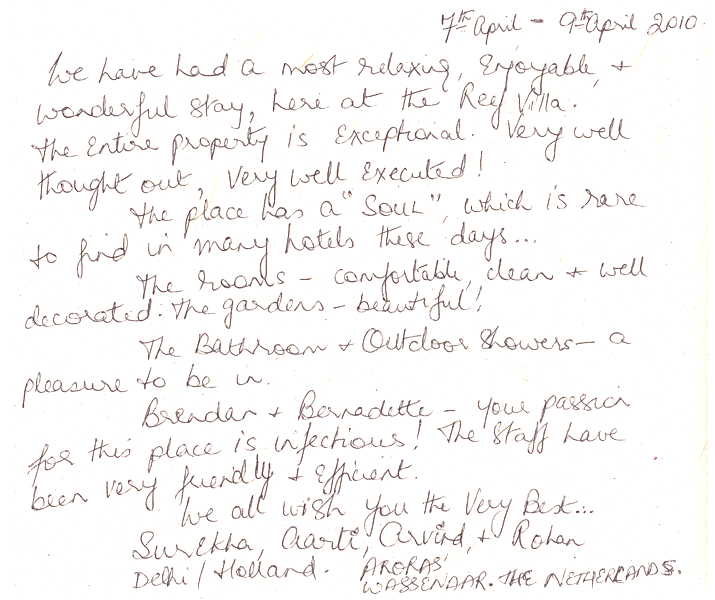 7th April - 9th April 2010.
We have had a most relaxing, Enjoyable, +
wonderful stay, here at the Reef Villa.
The Entire property is Exceptional. Very well
thought out, Very well Executed!
The place has a "Soul", which is rare
to find in many hotels these days...
The rooms - comfortable, clean + well
decorated. The gardens - beautiful!
The Bathroom + Outdoor Showers - a
pleasure to be in.
Brendan + Bernadette - your passion
for this place is infectious! The Staff have
been very friendly + Efficient.
We all wish you the Very Best...
Surekha, Aarti, Arvind, + Rohan
Delhi / Holland. ARORAS'
WASSENAAR. THE NETHERLANDS.